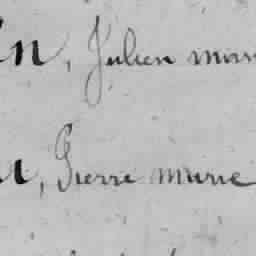 n, Julien marie
n, Pierre marie